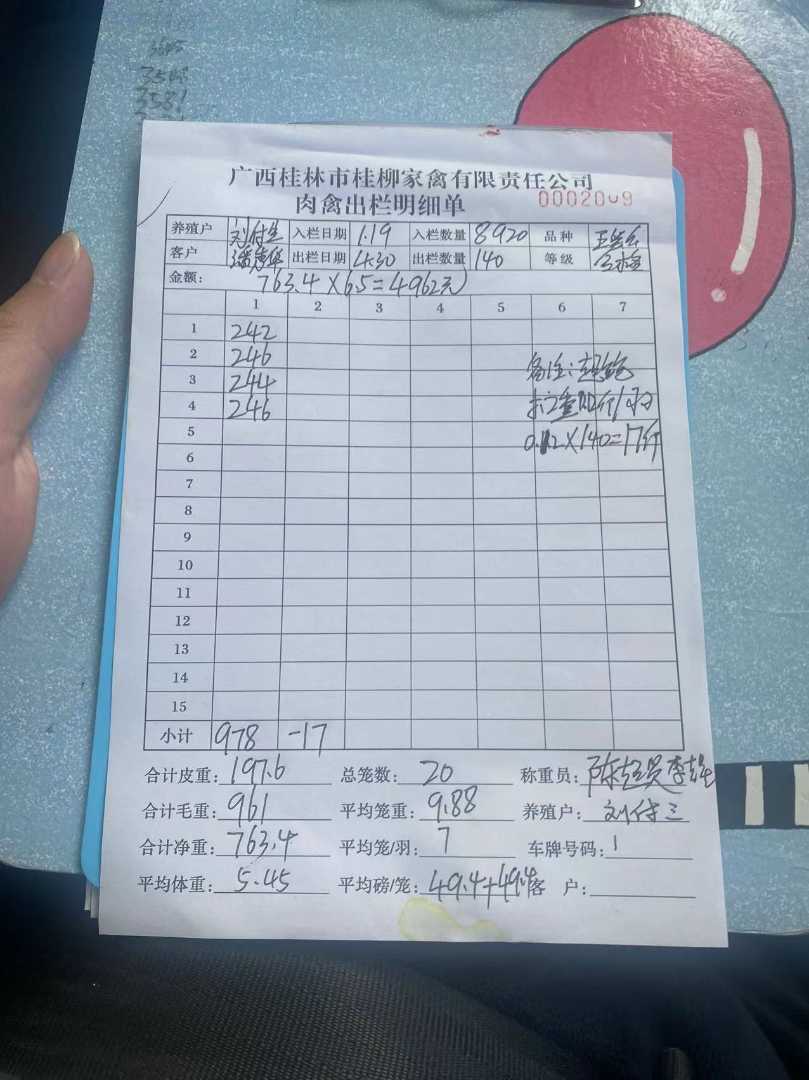 3581
广西桂林市桂柳家禽有限责任公司
肉禽出栏明细单 0002009
养殖户 入栏日期 1.19 入栏数量 8920 品种
客户 出栏日期 4.30 出栏数量 140 等级
金额: 763.4×6.5=4962元
1 2 3 4 5 6 7
1 242
2 246
3 244
4 246
备注:
5
0.12×140=17斤
6
7
8
9
10
11
12
13
14
15
小计 978 -17
合计皮重: 197.6 总笼数: 20 称重员:
合计毛重: 961 平均笼重: 9.88 养殖户: 刘付三
合计净重: 763.4 平均笼/羽: 7 车牌号码: 1
平均体重: 5.45 平均磅/笼: 49.4+49.4 客 户: